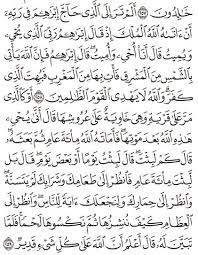 خَٰلِدُونَ ٢٥٧ أَلَمْ تَرَ إِلَى ٱلَّذِى حَآجَّ إِبْرَٰهِـۧمَ فِى رَبِّهِۦٓ
أَنْ ءَاتَىٰهُ ٱللَّهُ ٱلْمُلْكَ إِذْ قَالَ إِبْرَٰهِـۧمُ رَبِّىَ ٱلَّذِى يُحْىِۦ
وَيُمِيتُ قَالَ أَنَا۠ أُحْىِۦ وَأُمِيتُ قَالَ إِبْرَٰهِـۧمُ فَإِنَّ ٱللَّهَ يَأْتِى
بِٱلشَّمْسِ مِنَ ٱلْمَشْرِقِ فَأْتِ بِهَا مِنَ ٱلْمَغْرِبِ فَبُهِتَ ٱلَّذِى
كَفَرَ وَٱللَّهُ لَا يَهْدِى ٱلْقَوْمَ ٱلظَّٰلِمِينَ ٢٥٨ أَوْ كَٱلَّذِى
مَرَّ عَلَىٰ قَرْيَةٍ وَهِىَ خَاوِيَةٌ عَلَىٰ عُرُوشِهَا قَالَ أَنَّىٰ يُحْىِۦ
هَٰذِهِ ٱللَّهُ بَعْدَ مَوْتِهَا فَأَمَاتَهُ ٱللَّهُ مِا۟ئَةَ عَامٍ ثُمَّ بَعَثَهُۥ
قَالَ كَمْ لَبِثْتَ قَالَ لَبِثْتُ يَوْمًا أَوْ بَعْضَ يَوْمٍ قَالَ بَل
لَّبِثْتَ مِا۟ئَةَ عَامٍ فَٱنظُرْ إِلَىٰ طَعَامِكَ وَشَرَابِكَ لَمْ يَتَسَنَّهْ
وَٱنظُرْ إِلَىٰ حِمَارِكَ وَلِنَجْعَلَكَ ءَايَةً لِّلنَّاسِ وَٱنظُرْ إِلَى
ٱلْعِظَامِ كَيْفَ نُنشِزُهَا ثُمَّ نَكْسُوهَا لَحْمًا فَلَمَّا
تَبَيَّنَ لَهُۥ قَالَ أَعْلَمُ أَنَّ ٱللَّهَ عَلَىٰ كُلِّ شَىْءٍ قَدِيرٌ ٢٥٩